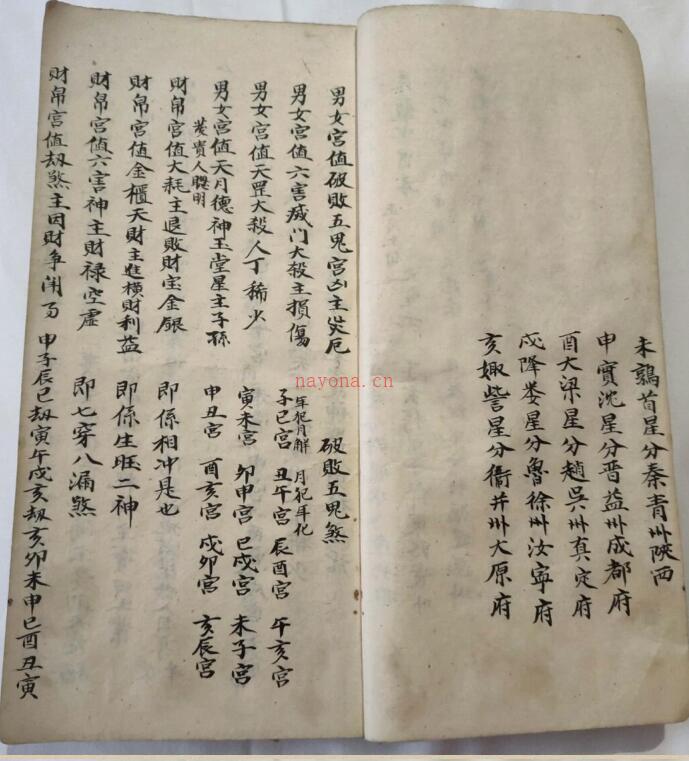 未鶉首星分秦青州陝西
申實沈星分晋益州成都府
酉大梁星分趙吳州真定府
戍降娄星分魯徐州汝寧府
亥娵訾星分衞并州大原府
男女宫值破敗五鬼宫凶主災厄 破敗五鬼煞
男女宫值六害烕门大殺主損傷 年犯月解 月犯年化
子巳宫 丑午宫 辰酉宫 午亥宫
男女宫值天罡大殺人丁稀少 寅未宫 卯申宫 巳戍宫 未子宫
男女宫值天月德神玉堂星主子孫 申丑宫 酉亥宫 戍卯宫 亥辰宫
發貴人聰明
財帛宫值大耗主退敗財宝金銀 即係相冲是也
財帛宫值金櫃天財主進横財利益 即係生旺二神
財帛宫值六害神主財禄空虚 即七穿八漏煞
財帛宫值刼煞主因財争闹多 申子辰巳刼寅午戍亥刼亥卯未申巳酉丑寅
nayona.cn